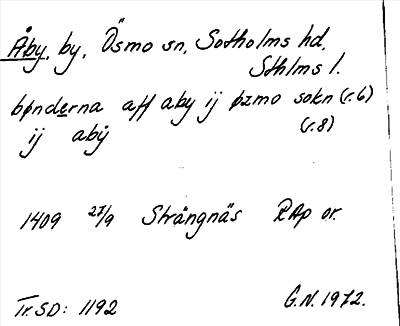 Åby, by, Ösmo sn, Sotholms hd,
Sthlms l.
bønderna aff aby ij øzmo sokn (r.6)
ij abÿ (r.8)
1409 27/9 Strängnäs RAp or.
Tr. SD: 1192 G.N. 1972.